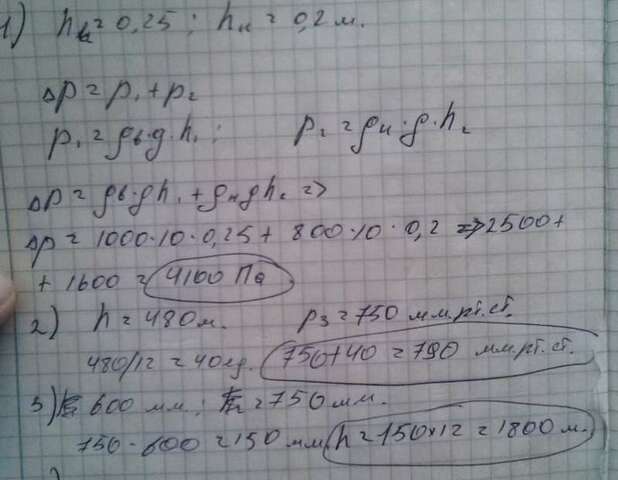 1) hв = 0,25 ; hн = 0,2 м.
Δp = p₁ + p₂
p₁ = ρв·g·h₁ ; p₂ = ρн·g·h₂
Δp = ρв·gh₁ + ρнgh₂ =>
Δp = 1000·10·0,25 + 800·10·0,2 => 2500+
+ 1600 = 4100 Па
2) h = 480 м. p₃ = 750 мм.рт.ст.
480/12 = 40 ед. 750+40 = 790 мм.рт.ст.
3) 600 мм ; = 750 мм.
750 - 600 = 150 мм h = 150×12 = 1800 м.